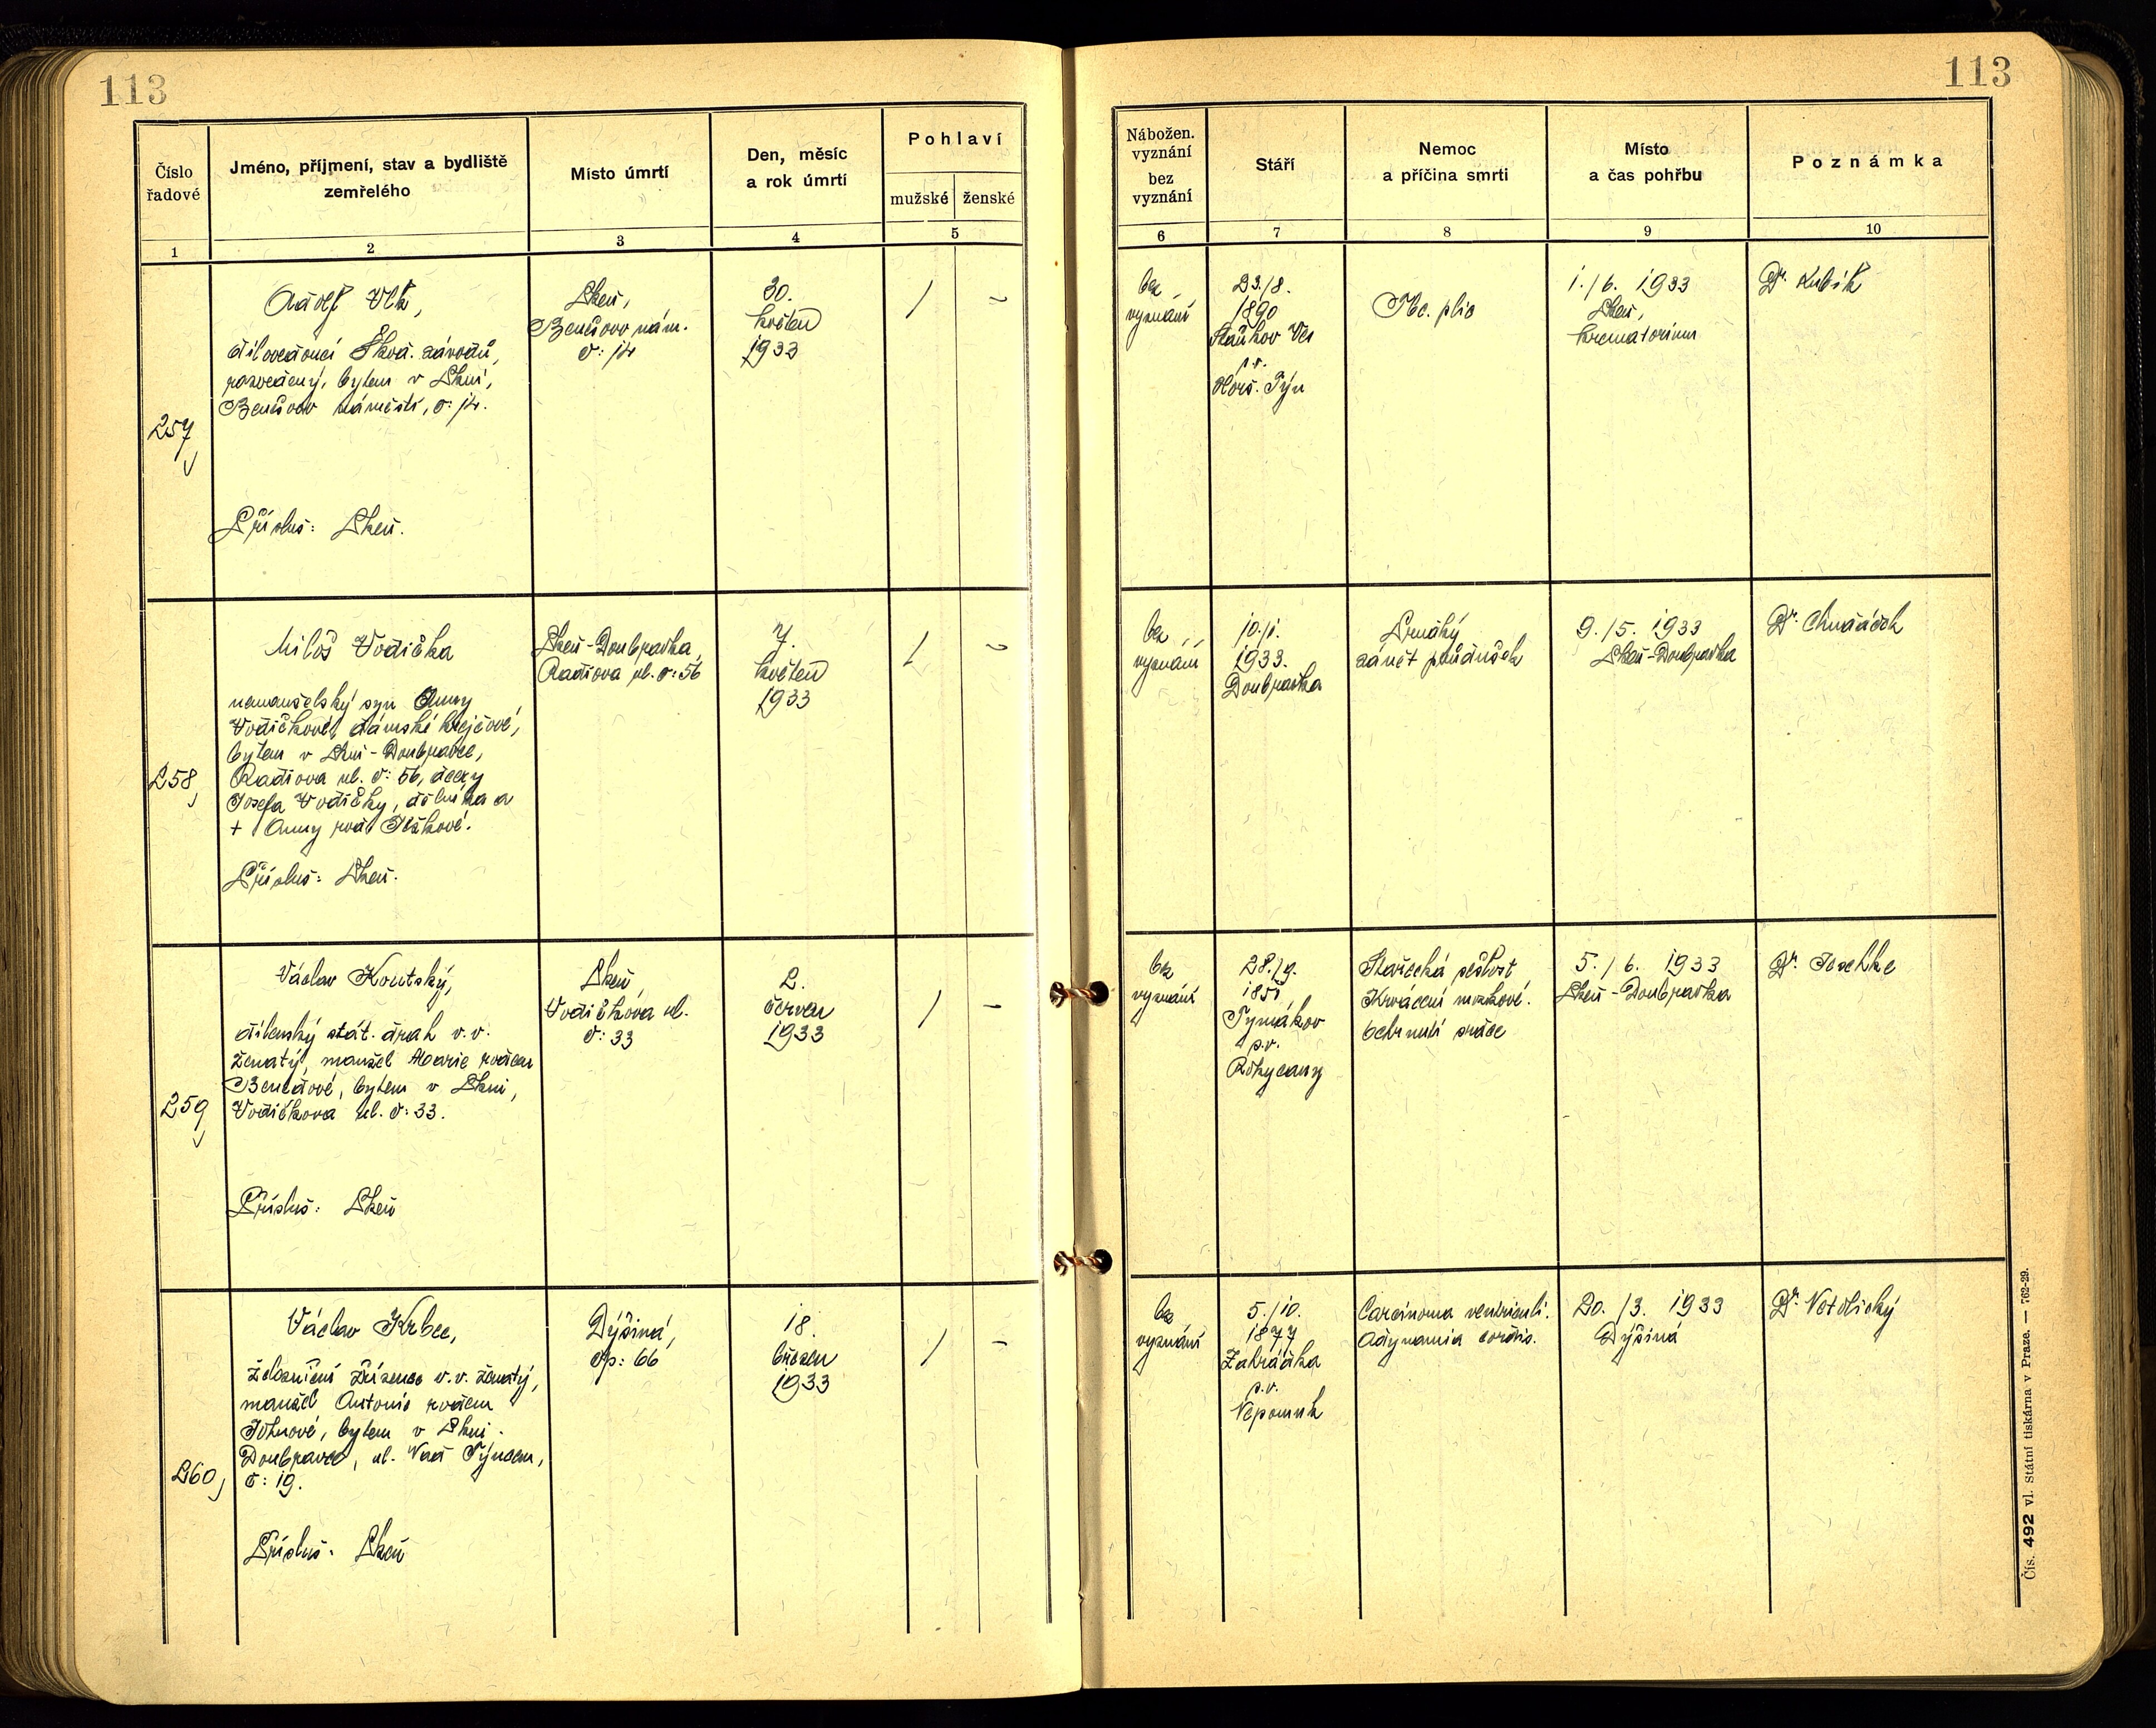 113
113
Číslo řadové
Jméno, příjmení, stav a bydliště zemřelého
Místo úmrtí
Den, měsíc a rok úmrtí
Pohlaví
mužské
ženské
Nábožen. vyznání bez vyznání
Stáří
Nemoc a příčina smrti
Místo a čas pohřbu
Poznámka
1 2 3 4 5 6 7 8 9 10
257
Adolf Vlk,
dílovedoucí Škod. závodů,
rozvedený, bytem v Plzni,
Benešovo náměstí, č: 14.
Přísluš: Plzeň.
Plzeň,
Benešovo nám.
č: 14
30.
květen
1933
/ –
bez
vyznání
23./8.
1890
Staňkov Ves
p.v.
Horš. Týn
Tbc. plic
1./6. 1933
Plzeň,
krematorium
Dr. Kubík
258
Miloš Vodička
nemanželský syn Anny
Vodičkové, dámské krejčové,
bytem v Plzni-Doubravce,
Radiova ul. č: 56, dcery
Josefa Vodičky, dělníka a
+ Anny roz.
Přísluš: Plzeň.
Plzeň-Doubravka,
Radiova ul. č: 56
7.
květen
1933
/ –
bez
vyznání
10./1.
1933.
Doubravka
Prudký
zánět průdušek
9./5. 1933
Plzeň-Doubravka
Dr.
259
Václav Koutský,
dílenský stát. drah v.v.
ženatý, manžel Marie rozen
Bendové, bytem v Plzni,
Vodičkova ul. č: 33.
Přísluš: Plzeň
Plzeň,
Vodičkova ul.
č: 33
2.
červen
1933
/ –
bez
vyznání
28./9.
1851
Tymákov
p.v.
Rokycany
Stařecká sešlost
Krvácení mozkové.
Ochrnutí srdce
5./6. 1933
Plzeň-Doubravka
Dr.
260
Václav Krbec,
železniční zřízenec v.v. ženatý,
manžel Antonie rozen
bytem v Plzni-
Doubravce, ul. Nad Týncem,
č: 19.
Přísluš: Plzeň
Dýšina,
čp: 66
18.
březen
1933
/ –
bez
vyznání
5./10.
1877
Zahrádka
p.v.
Nepomuk
Carcinoma ventriculi.
Adynamia cordis.
20./3. 1933
Dýšina
Dr. Netolický
Čís. 492 vl. Státní tiskárna v Praze. — 762-29.